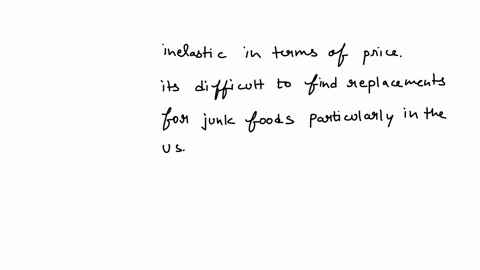 inelastic in terms of price.
its difficult to find replacements
for junk foods particularly in the
us.